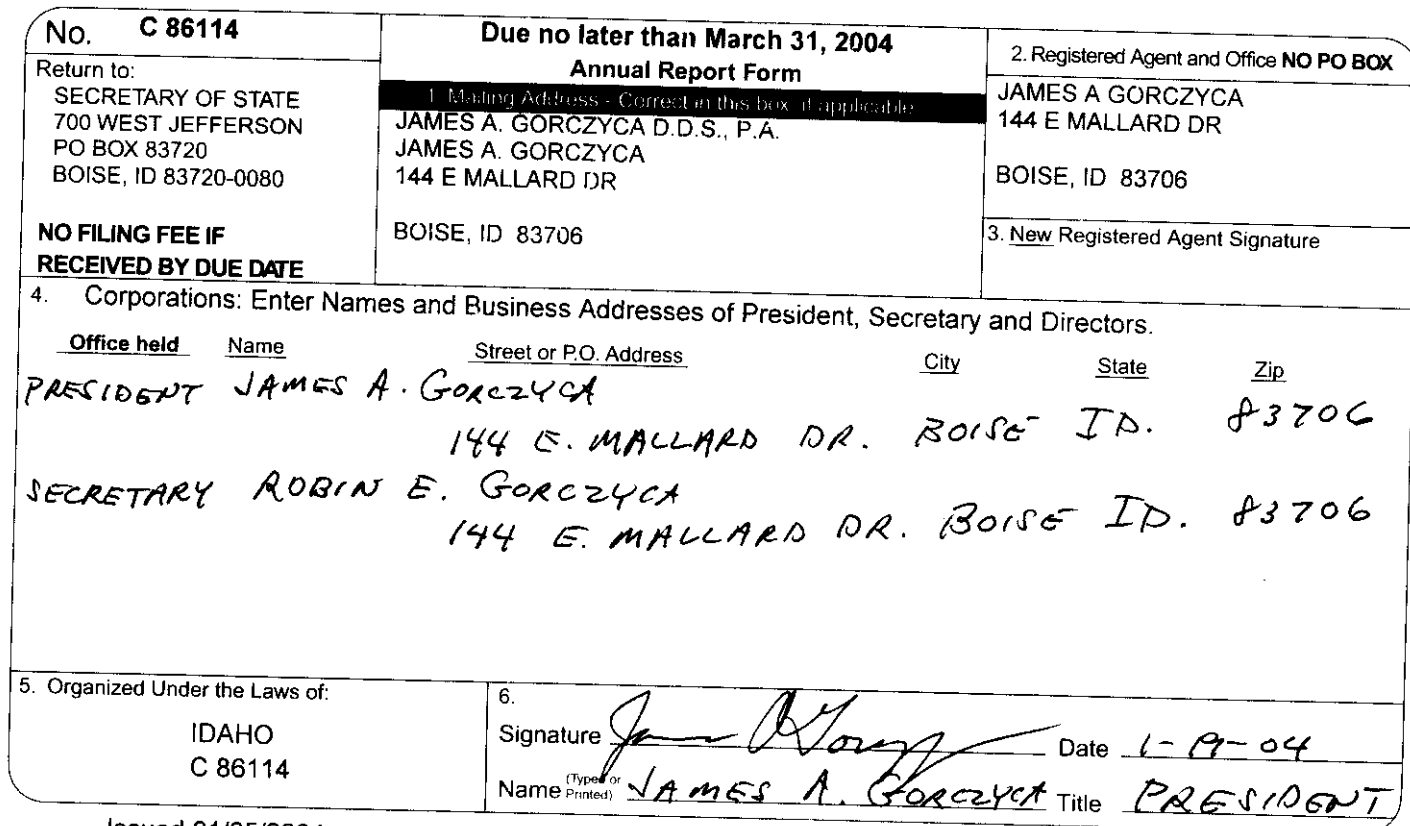 No. C 86114
Return to:
SECRETARY OF STATE
700 WEST JEFFERSON
PO BOX 83720
BOISE, ID 83720-0080
NO FILING FEE IF
RECEIVED BY DUE DATE
Due no later than March 31, 2004
Annual Report Form
1. Mailing Address - Correct in this box, if applicable
JAMES A. GORCZYCA D.D.S., P.A.
JAMES A. GORCZYCA
144 E MALLARD DR
BOISE, ID 83706
2. Registered Agent and Office NO PO BOX
JAMES A GORCZYCA
144 E MALLARD DR
BOISE, ID 83706
3. New Registered Agent Signature
4. Corporations: Enter Names and Business Addresses of President, Secretary and Directors.
Office held Name Street or P.O. Address City State Zip
PRESIDENT JAMES A. GORCZYCA
144 E. MALLARD DR. BOISE ID. 83706
SECRETARY ROBIN E. GORCZYCA
144 E. MALLARD DR. BOISE ID. 83706
5. Organized Under the Laws of:
IDAHO
C 86114
6.
Signature Date 1-19-04
Name (Typed or Printed) JAMES A. GORCZYCA Title PRESIDENT